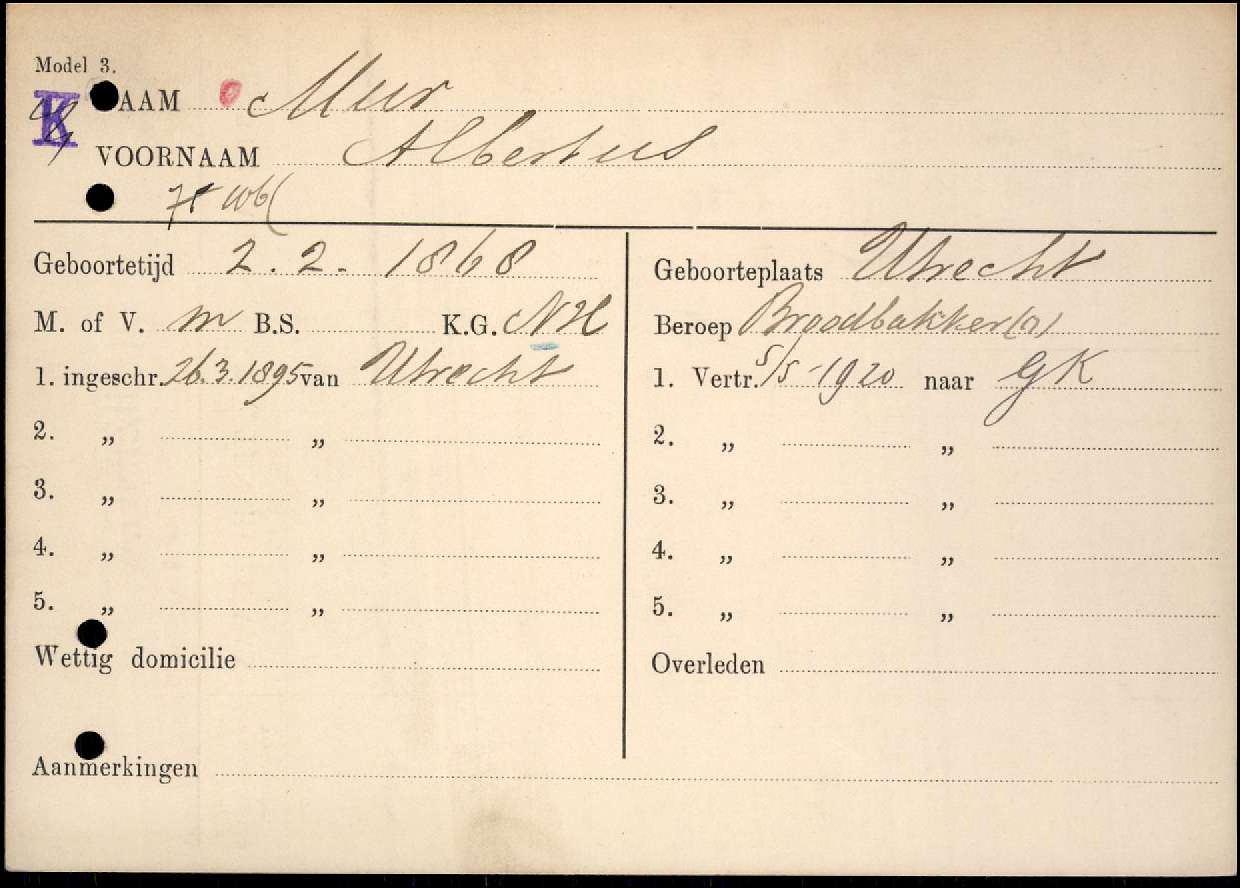 Model 3.
K AAM Mur
VOORNAAM Albertus
Geboortetijd 2. 2. 1868
Geboorteplaats Utrecht
M. of V. m B.S. K.G. NH
Beroep Broodbakker(n)
1. ingeschr. 26.3.1895 van Utrecht
1. Vertr. 5/5-1920 naar GK
2. „ „
2. „ „
3. „ „
3. „ „
4. „ „
4. „ „
5. „ „
5. „ „
Wettig domicilie
Overleden
Aanmerkingen